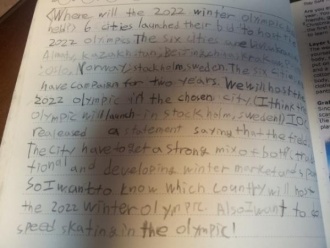 (Where will the 2022 winter olympic
hold? 6 cities launched their bid to host
2022 olympos. The six cities are
Almaty, Kazakhstan, Beijing
Oslo, Norway, stockholm, sweden. The six cities
have campaign for two years. We will host the
2022 olympic in the chosen city. (I think the
olympic will launch in stockholm, sweden) IOC
realesed a statement saying that the field
The city have to get a strong mix of both
tional and developing winter market and s
So I want to know which country will host
the 2022 winter olympic. Also I want to
speed skating in the olympic!